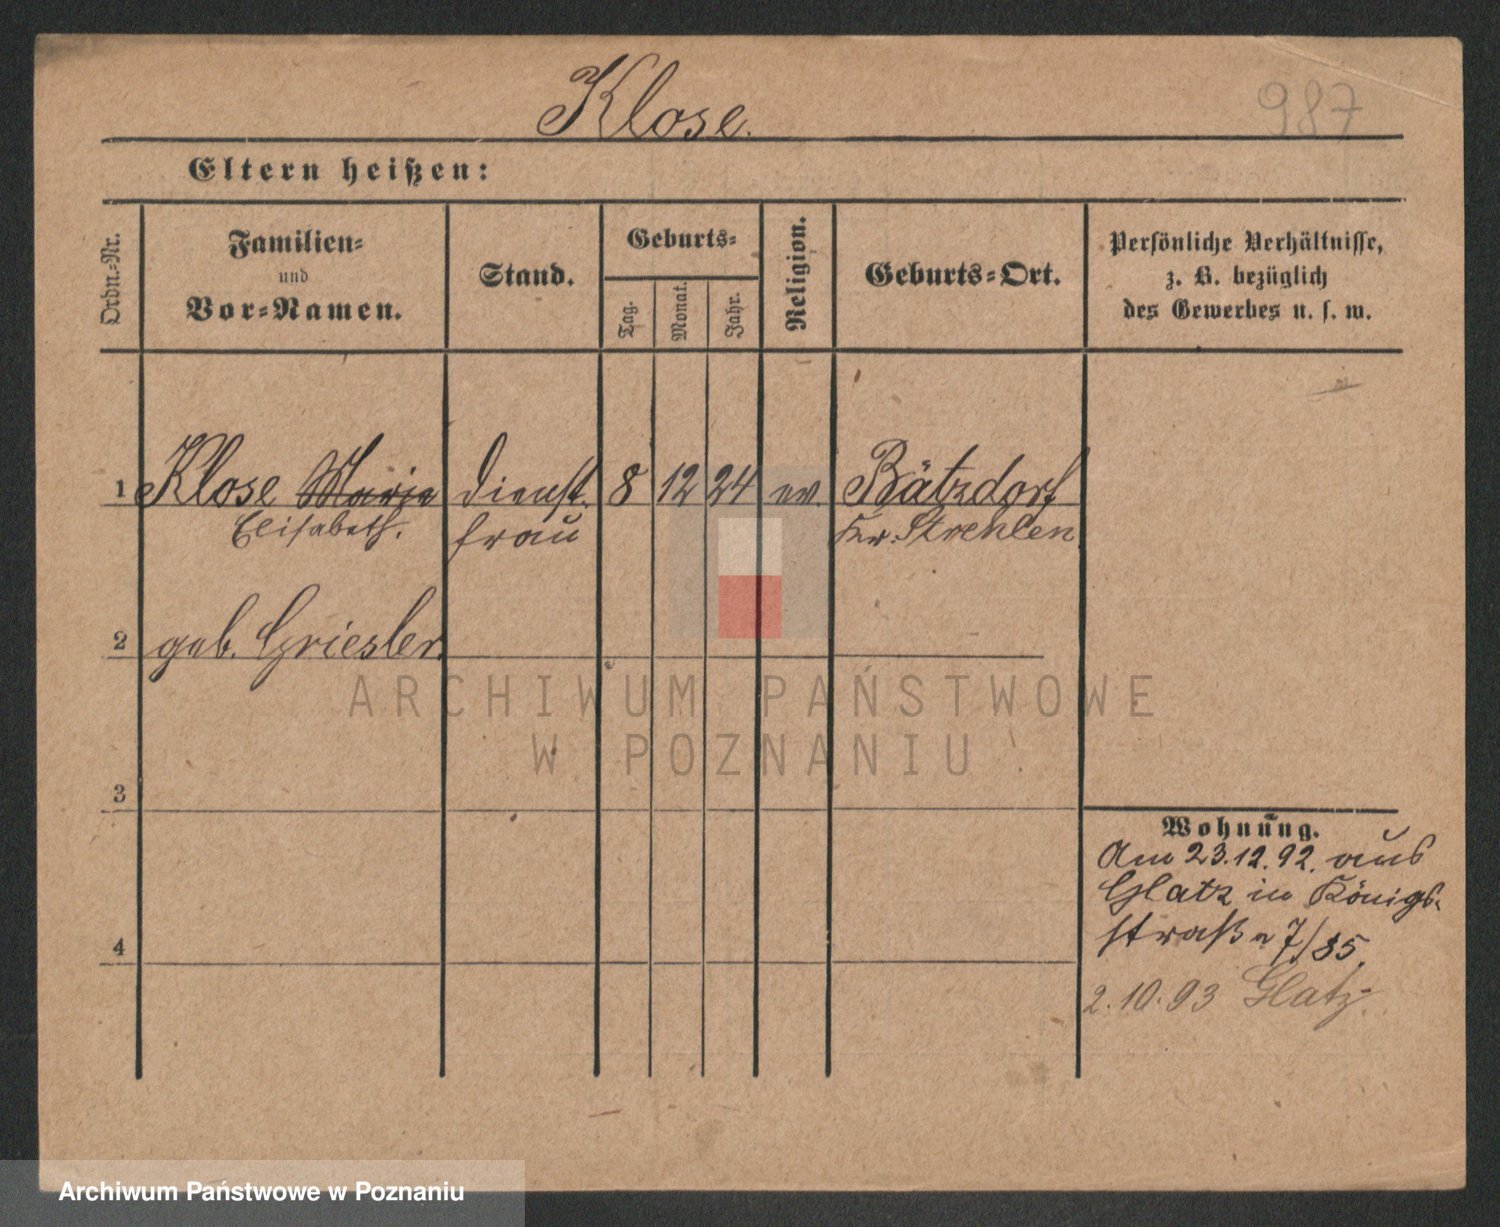 Klose.
987
Eltern heißen:
Ordn.-Nr.
Familien-
und
Vor-Namen.
Stand.
Geburts-
Tag.
Monat.
Jahr.
Religion.
Geburts-Ort.
Persönliche Verhältnisse,
z. B. bezüglich
des Gewerbes u. s. w.
1 Klose Marie Dienst- 8 12 24 ev. Bätzdorf
Elisabeth. frau Kr. Strehlen
2 geb. Griesler.
ARCHIWUM PAŃSTWOWE
W POZNANIU
3
4
Wohnung.
Am 23.12.92. aus
Glatz in Königs-
straße 7/85.
2.10.93 Glatz.
Archiwum Państwowe w Poznaniu